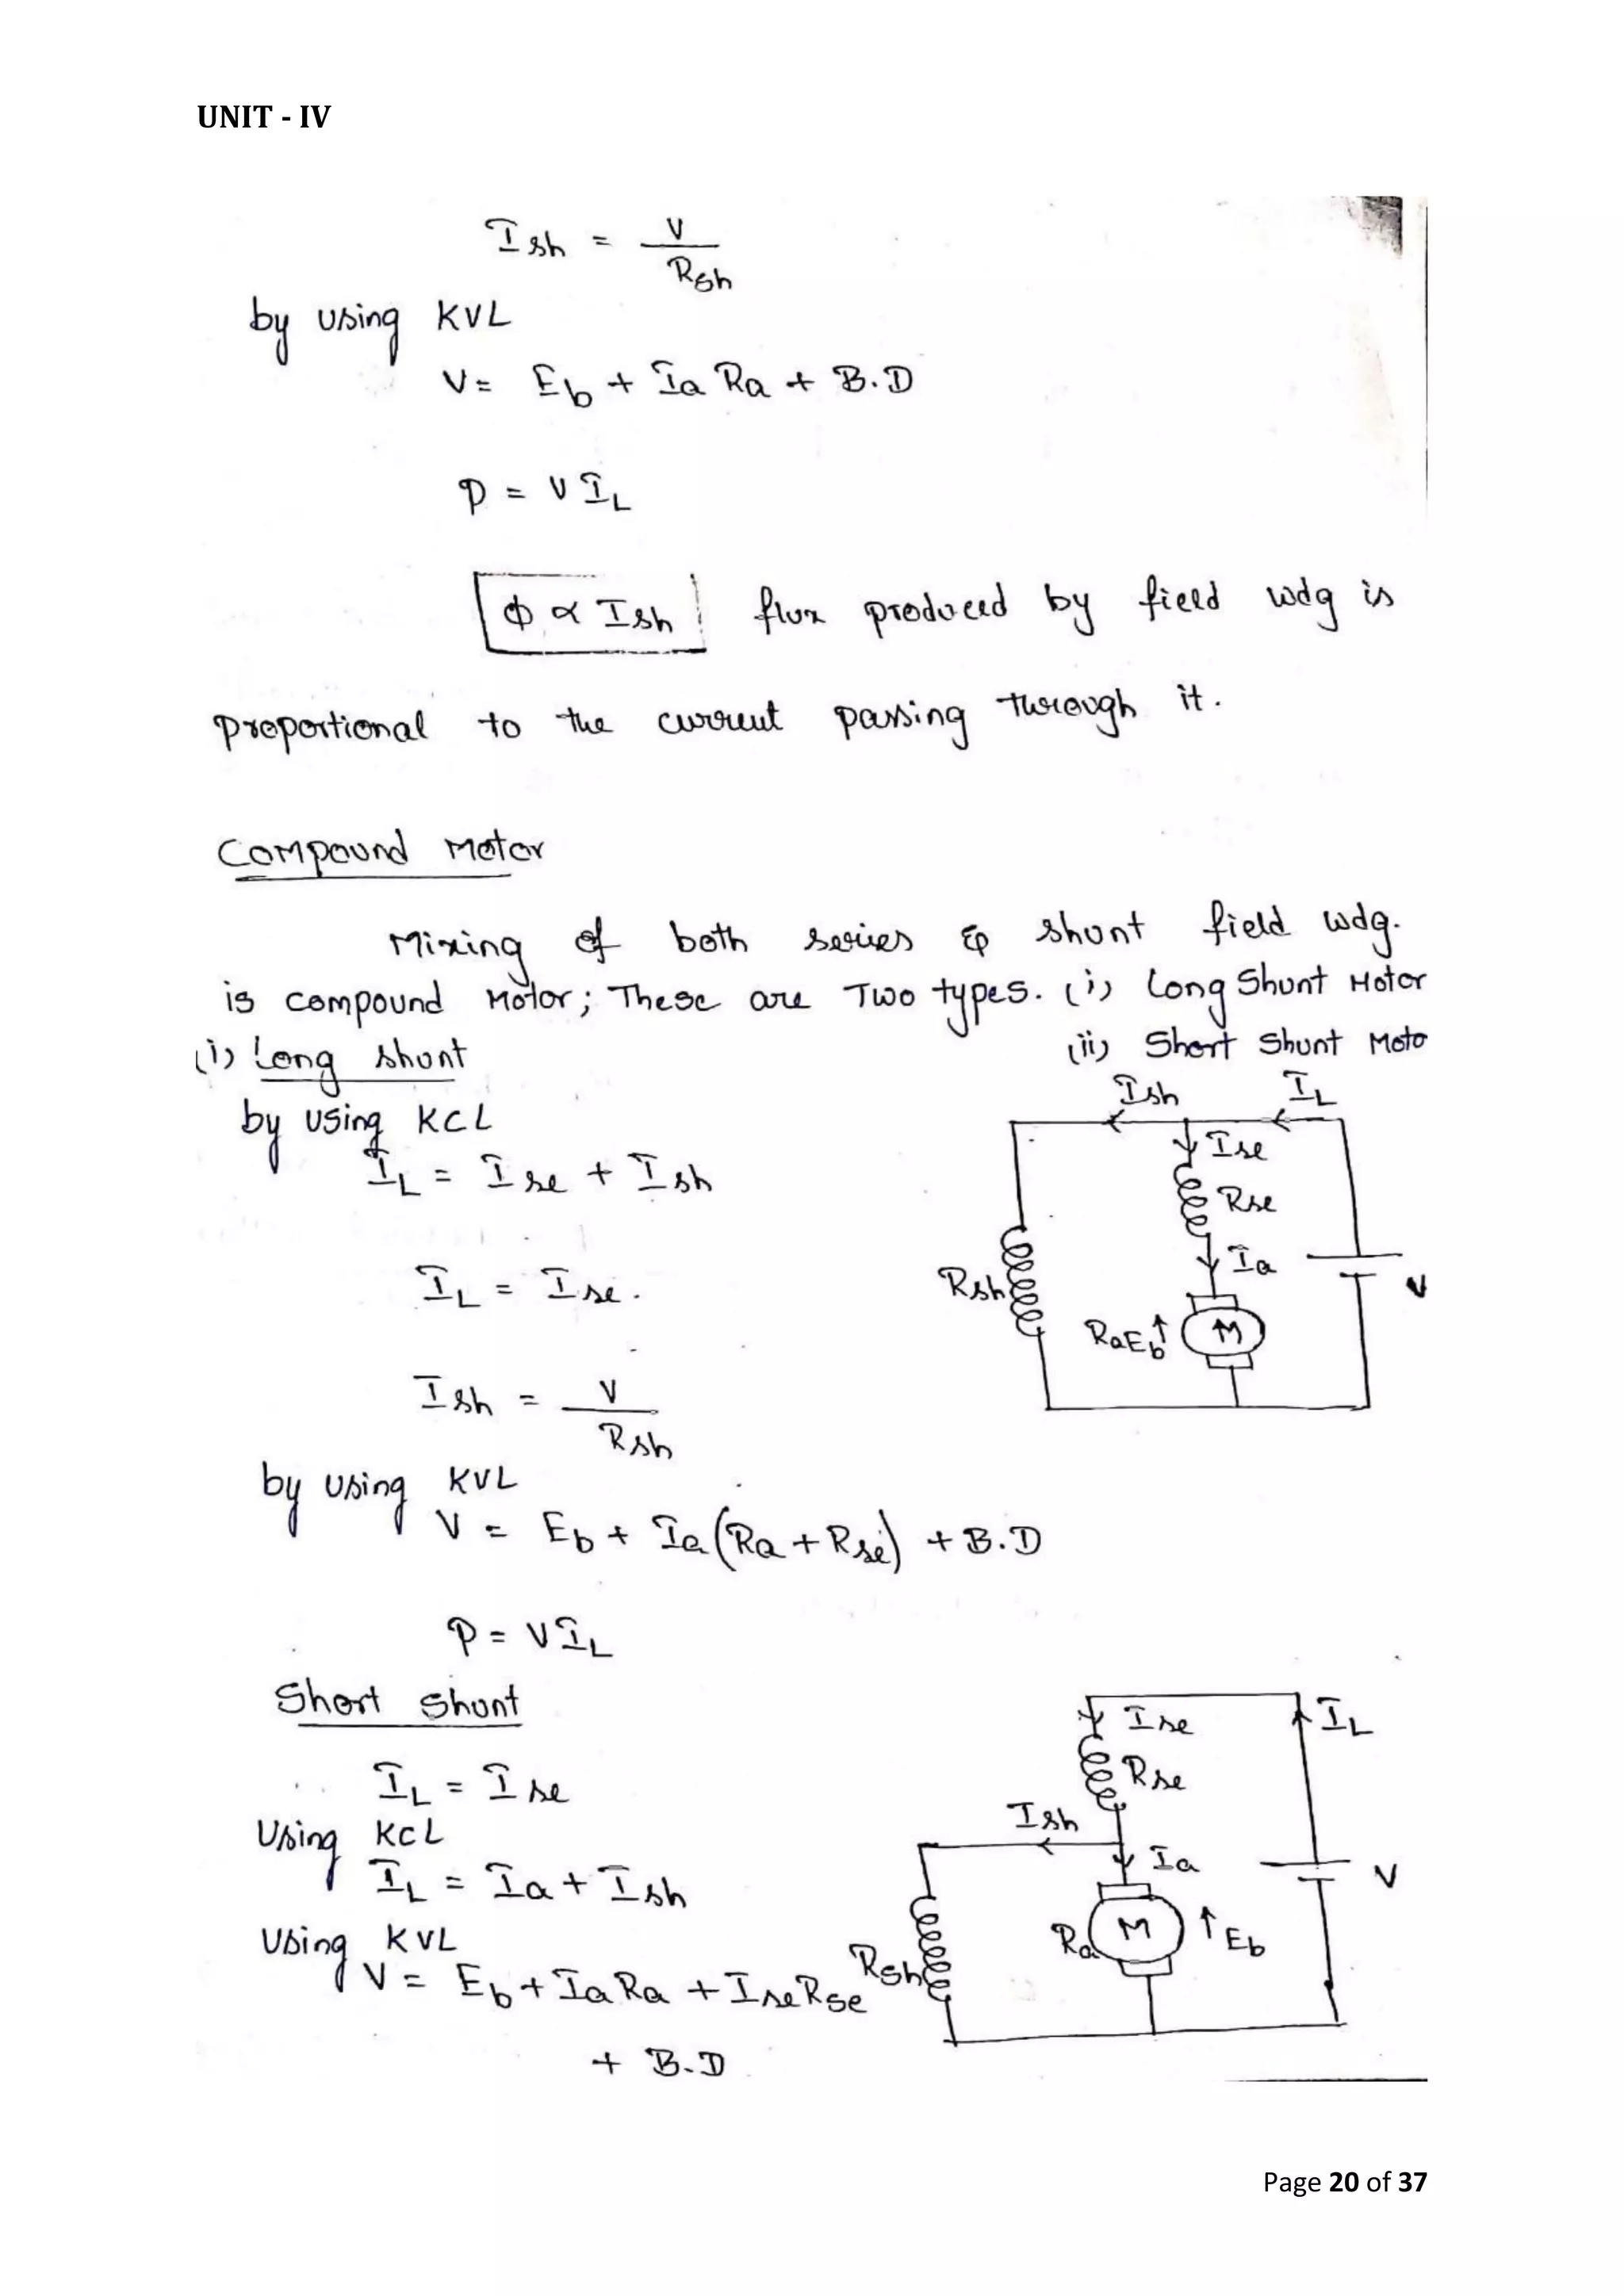 UNIT - IV
Ish = V / Rsh
by using KVL
V = Eb + Ia Ra + B.D
P = V IL
ϕ ∝ Ish flux produced by field wdg is
proportional to the current passing through it.
Compound Motor
Mixing of both series & shunt field wdg.
is compound Motor; These are Two types. (i) Long Shunt Motor
(ii) Short Shunt Moto
(i) Long shunt
by using KCL
IL = Ise + Ish
IL = Ise.
Ish = V / Rsh
by using KVL
V = Eb + Ia (Ra + Rse) + B.D
P = V IL
Ish IL
Ise
Rse
Ia
Rsh
Ra Eb M
V
Short Shunt
IL = Ise
Using KCL
IL = Ia + Ish
Using KVL
V = Eb + Ia Ra + Ise Rse
+ B.D
Ise IL
Rse
Ish
Ia
V
Ra M Eb
Rsh
Page 20 of 37